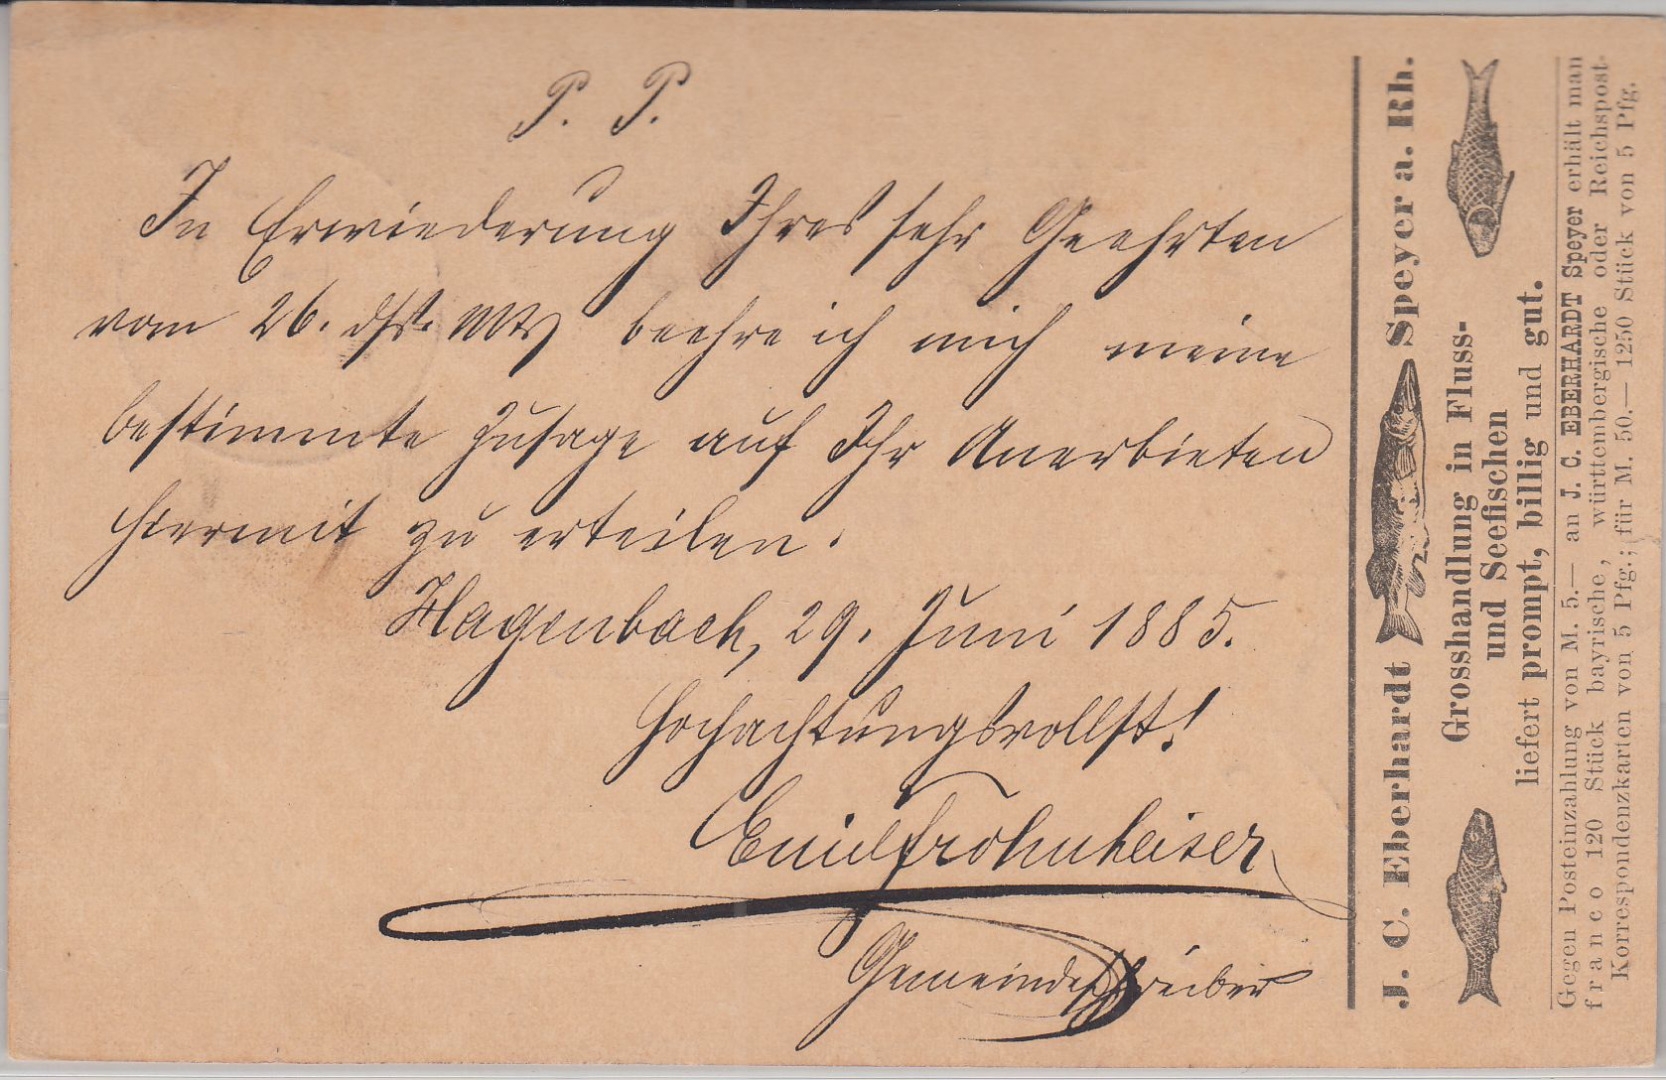 P. P.
In Erwiederung Ihres sehr Geehrten
vom 26. dss. Mts beehre ich mich meine
bestimmte Zusage auf Ihr Anerbieten
hiermit zu erteilen.
Hagenbach, 29. Juni 1885.
Hochachtungsvollst!
Emil Frohnheiser
Gemeindeschreiber
J. C. Eberhardt Speyer a. Rh.
Grosshandlung in Fluss-
und Seefischen
liefert prompt, billig und gut.
Gegen Posteinzahlung von M. 5.— an J. C. EBERHARDT Speyer erhält man
franco 120 Stück bayrische, württembergische oder Reichspost-
Korrespondenzkarten von 5 Pfg.; für M. 50.— 1250 Stück von 5 Pfg.